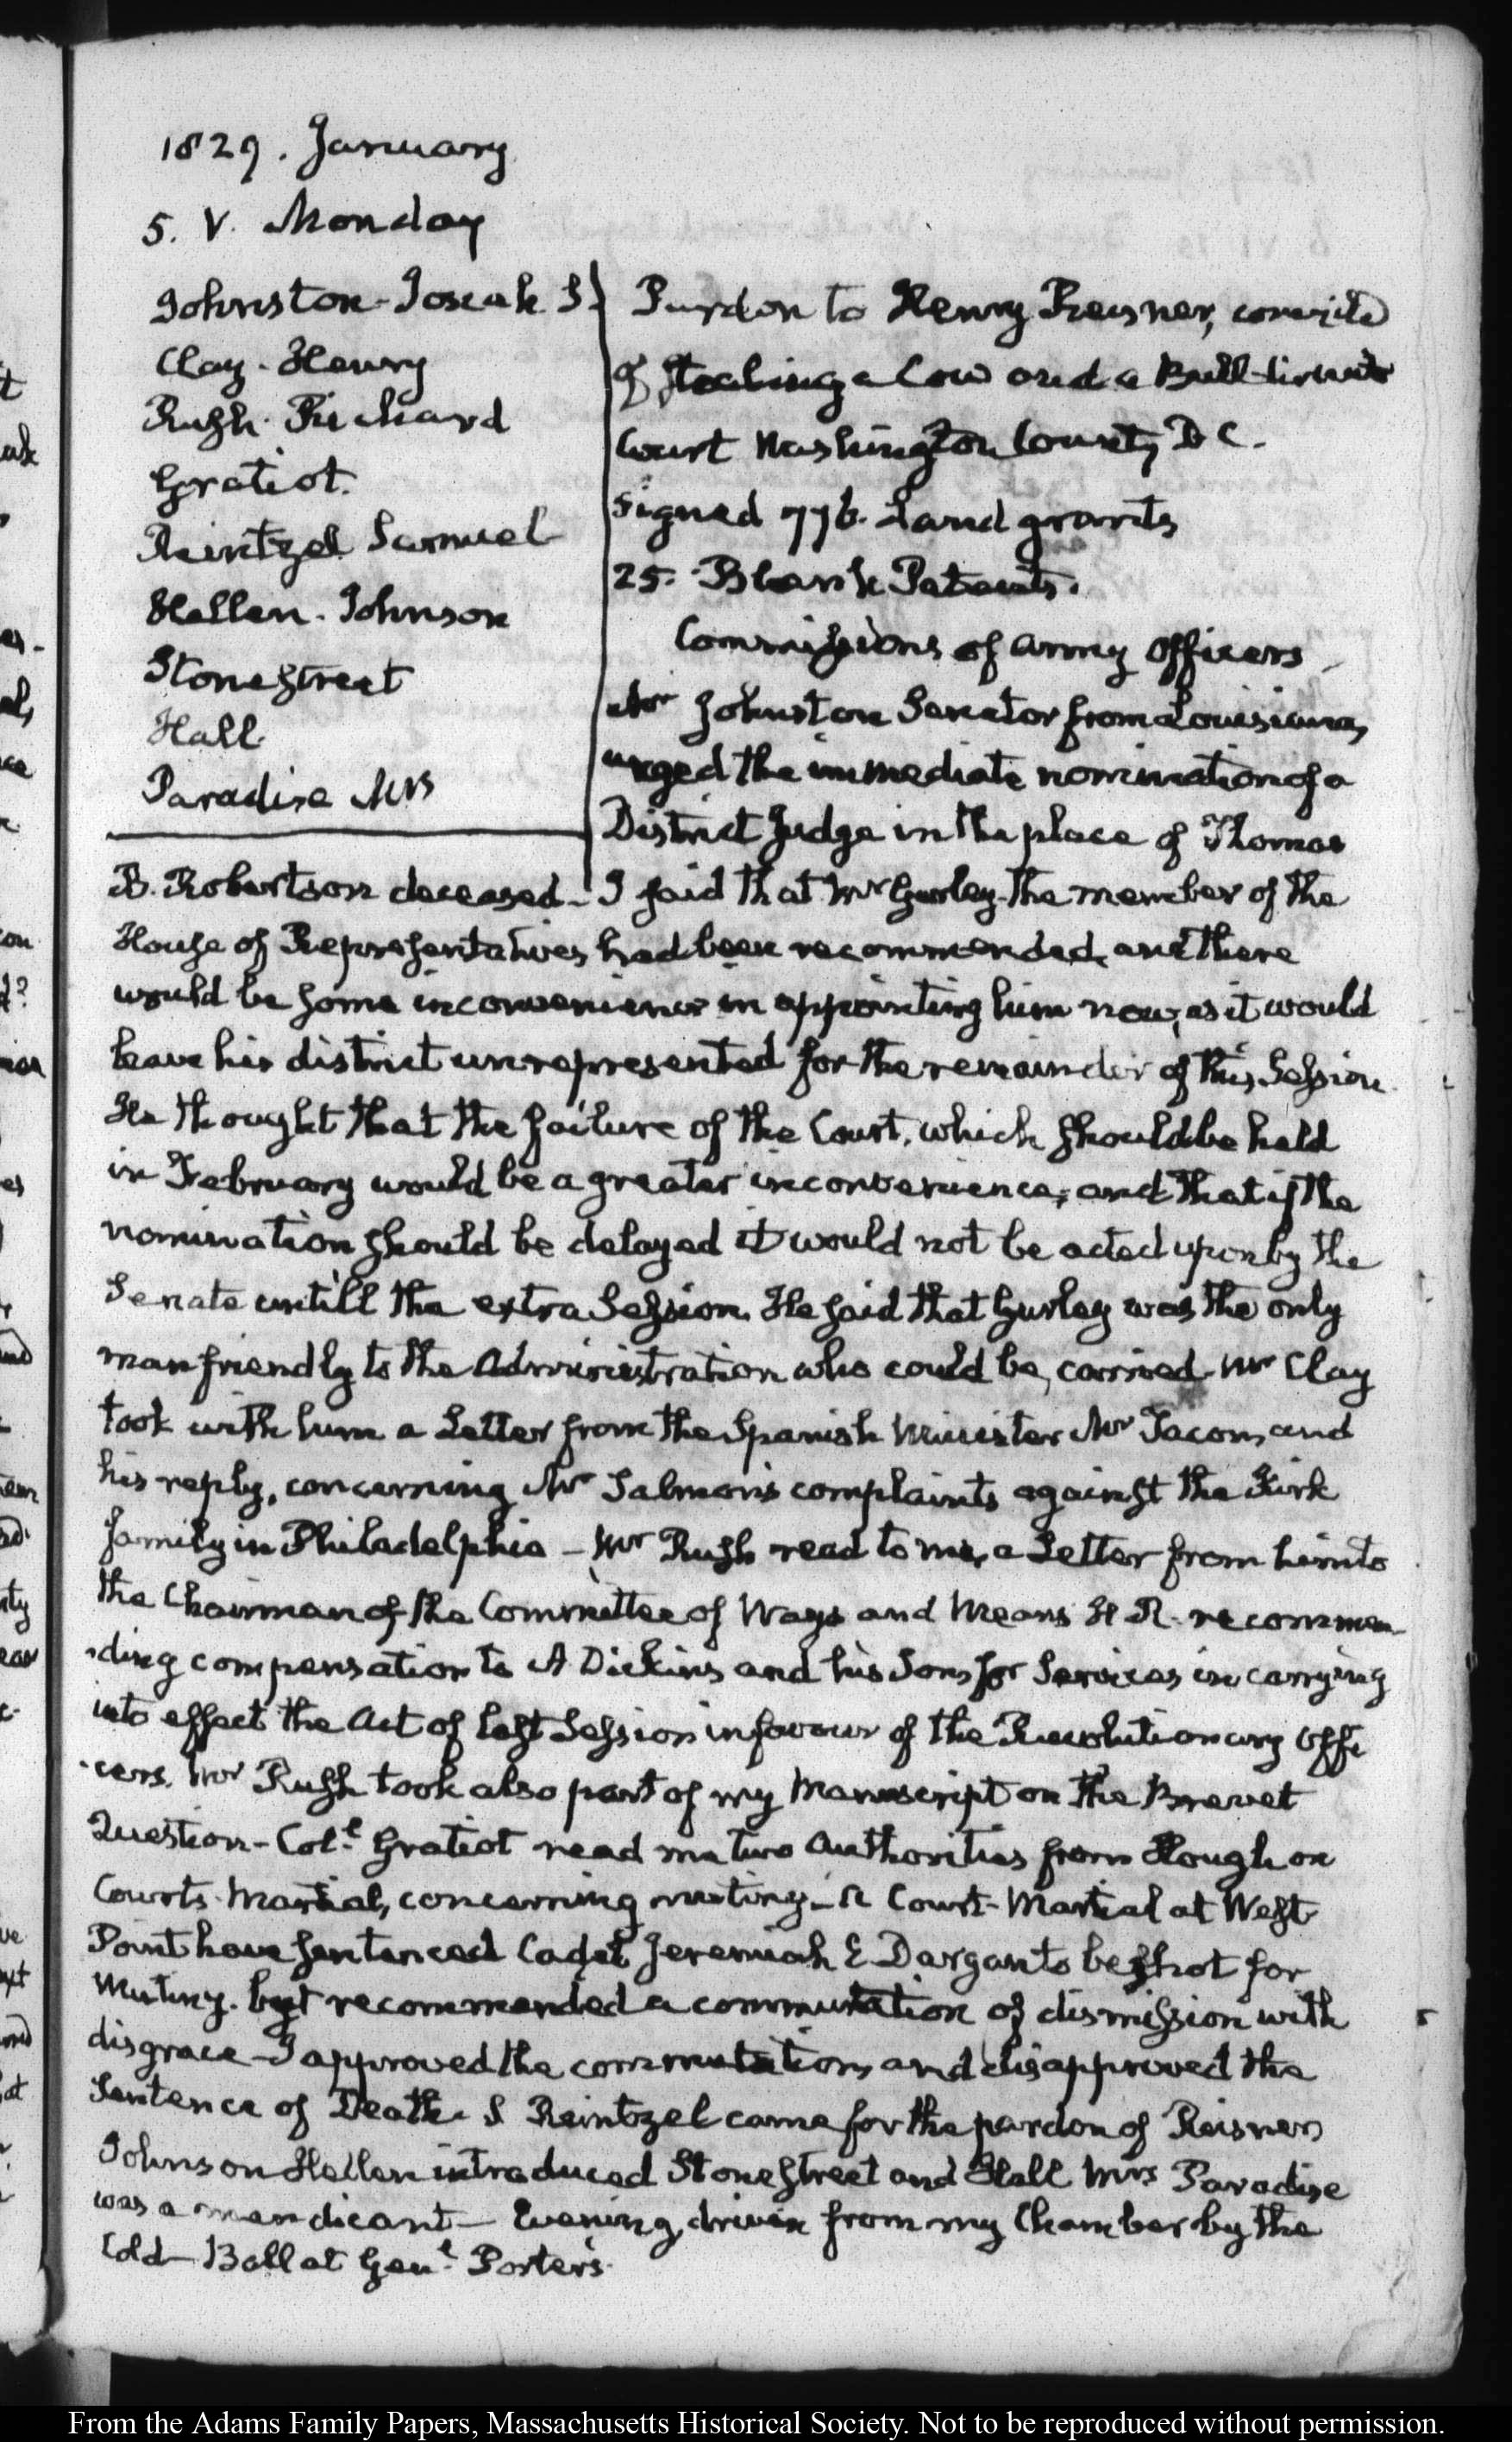 1829. January
5. V. Monday
Johnston - Josiah S.
Clay - Henry
Rush - Richard
Gratiot.
Reintzel Samuel
Hellen - Johnson
Stonestreet
Hall
Paradise Mrs
Pardon to Henry Reisner, convicted
of stealing a Cow and a Bull - Circuit
Court Washington County, D C.
signed 776. Land grants
25. Blank Patents.
Commissions of Army Officers
Mr Johnston Senator from Louisiana,
urged the immediate nomination of a
District Judge in the place of Thomas
B. Robertson deceased - I said that Mr Gurley the member of the
House of Representatives had been recommended, and there
would be some inconvenience in appointing him now, as it would
leave his district unrepresented for the remainder of this Session
He thought that the failure of the Court, which should be held
in February would be a greater inconvenience; and that if the
nomination should be delayed it would not be acted upon by the
Senate untill the extra Session. He said that Gurley was the only
man friendly to the Administration who could be, carried - Mr Clay
took with him a Letter from the Spanish Minister Mr Tacon, and
his reply, concerning Mr Salmon's complaints against the Kirk
family in Philadelphia - Mr Rush read to me, a Letter from him to
the Chairman of the Committee of Ways and Means H. R. recommen-
-ding compensation to A Dickins and his Sons for Services in carrying
into effect the Act of last Session in favour of the Revolutionary Offi
-cers. Mr Rush took also part of my Manuscript on the Brevet
Question - Col.l Gratiot read me two Authorities from Hough on
Courts-Martial, concerning mutiny - A Court-Martial at West
Point have sentenced Cadet Jeremiah E Dargan to be shot for
Mutiny. but recommended a commutation of dismission with
disgrace - I approved the commutation, and disapproved the
Sentence of Death. S Reintzel came for the pardon of Reisner,
Johnson Hellen introduced Stonestreet and Hall Mrs Paradise
was a mendicant - Evening, driven from my Chamber by the
Cold - Ball at Gen.l Porter's.
From the Adams Family Papers, Massachusetts Historical Society. Not to be reproduced without permission.